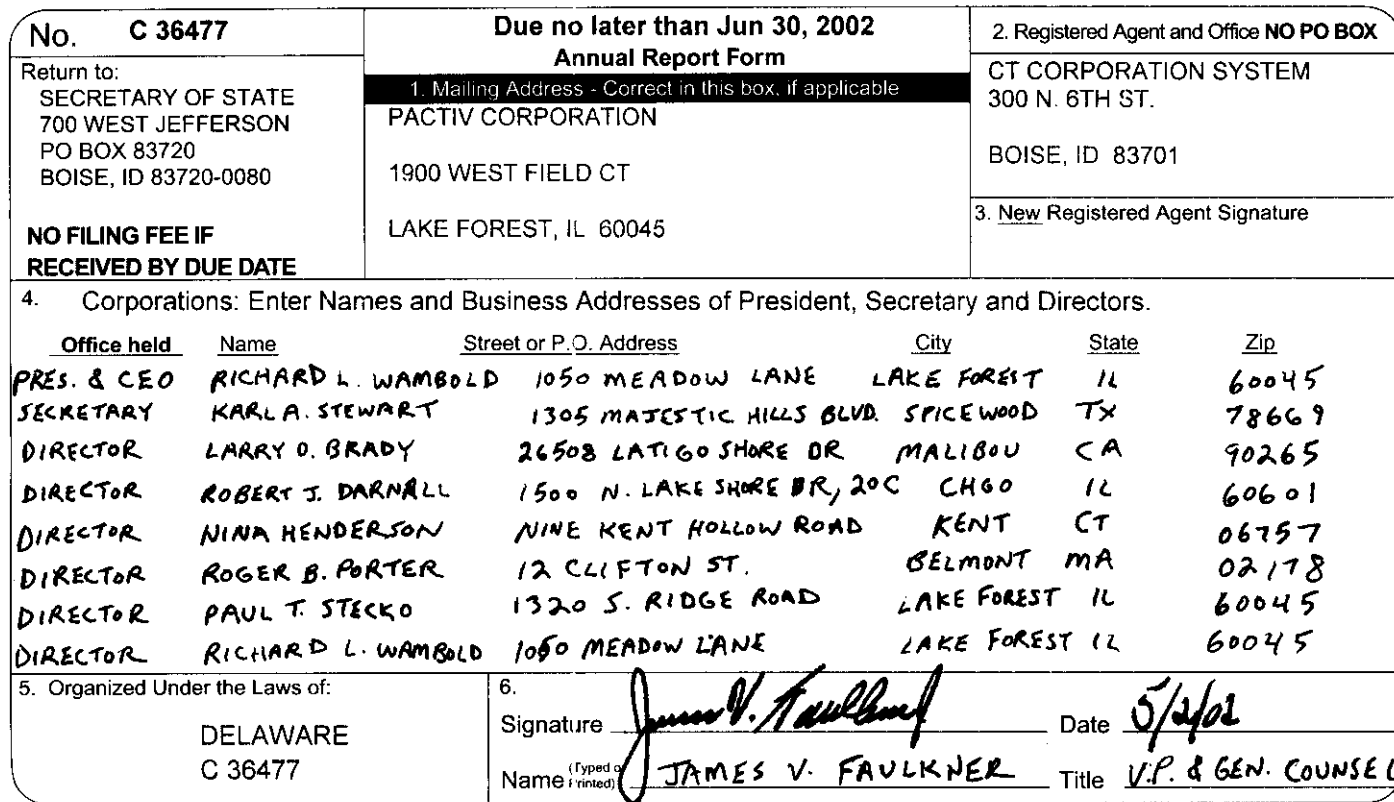 No. C 36477
Return to:
SECRETARY OF STATE
700 WEST JEFFERSON
PO BOX 83720
BOISE, ID 83720-0080
NO FILING FEE IF
RECEIVED BY DUE DATE
Due no later than Jun 30, 2002
Annual Report Form
1. Mailing Address - Correct in this box, if applicable
PACTIV CORPORATION
1900 WEST FIELD CT
LAKE FOREST, IL 60045
2. Registered Agent and Office NO PO BOX
CT CORPORATION SYSTEM
300 N. 6TH ST.
BOISE, ID 83701
3. New Registered Agent Signature
4. Corporations: Enter Names and Business Addresses of President, Secretary and Directors.
Office held Name Street or P.O. Address City State Zip
PRES. & CEO RICHARD L. WAMBOLD 1050 MEADOW LANE LAKE FOREST IL 60045
SECRETARY KARL A. STEWART 1305 MAJESTIC HILLS BLVD. SPICEWOOD TX 78669
DIRECTOR LARRY D. BRADY 26508 LATIGO SHORE DR MALIBOU CA 90265
DIRECTOR ROBERT J. DARNALL 1500 N. LAKE SHORE DR, 20C CHGO IL 60601
DIRECTOR NINA HENDERSON NINE KENT HOLLOW ROAD KENT CT 06757
DIRECTOR ROGER B. PORTER 12 CLIFTON ST. BELMONT MA 02178
DIRECTOR PAUL T. STECKO 1320 S. RIDGE ROAD LAKE FOREST IL 60045
DIRECTOR RICHARD L. WAMBOLD 1050 MEADOW LANE LAKE FOREST IL 60045
5. Organized Under the Laws of:
DELAWARE
C 36477
6.
Signature James V. Faulkner Date 5/2/02
Name (Typed or Printed) JAMES V. FAULKNER Title V.P. & GEN. COUNSEL